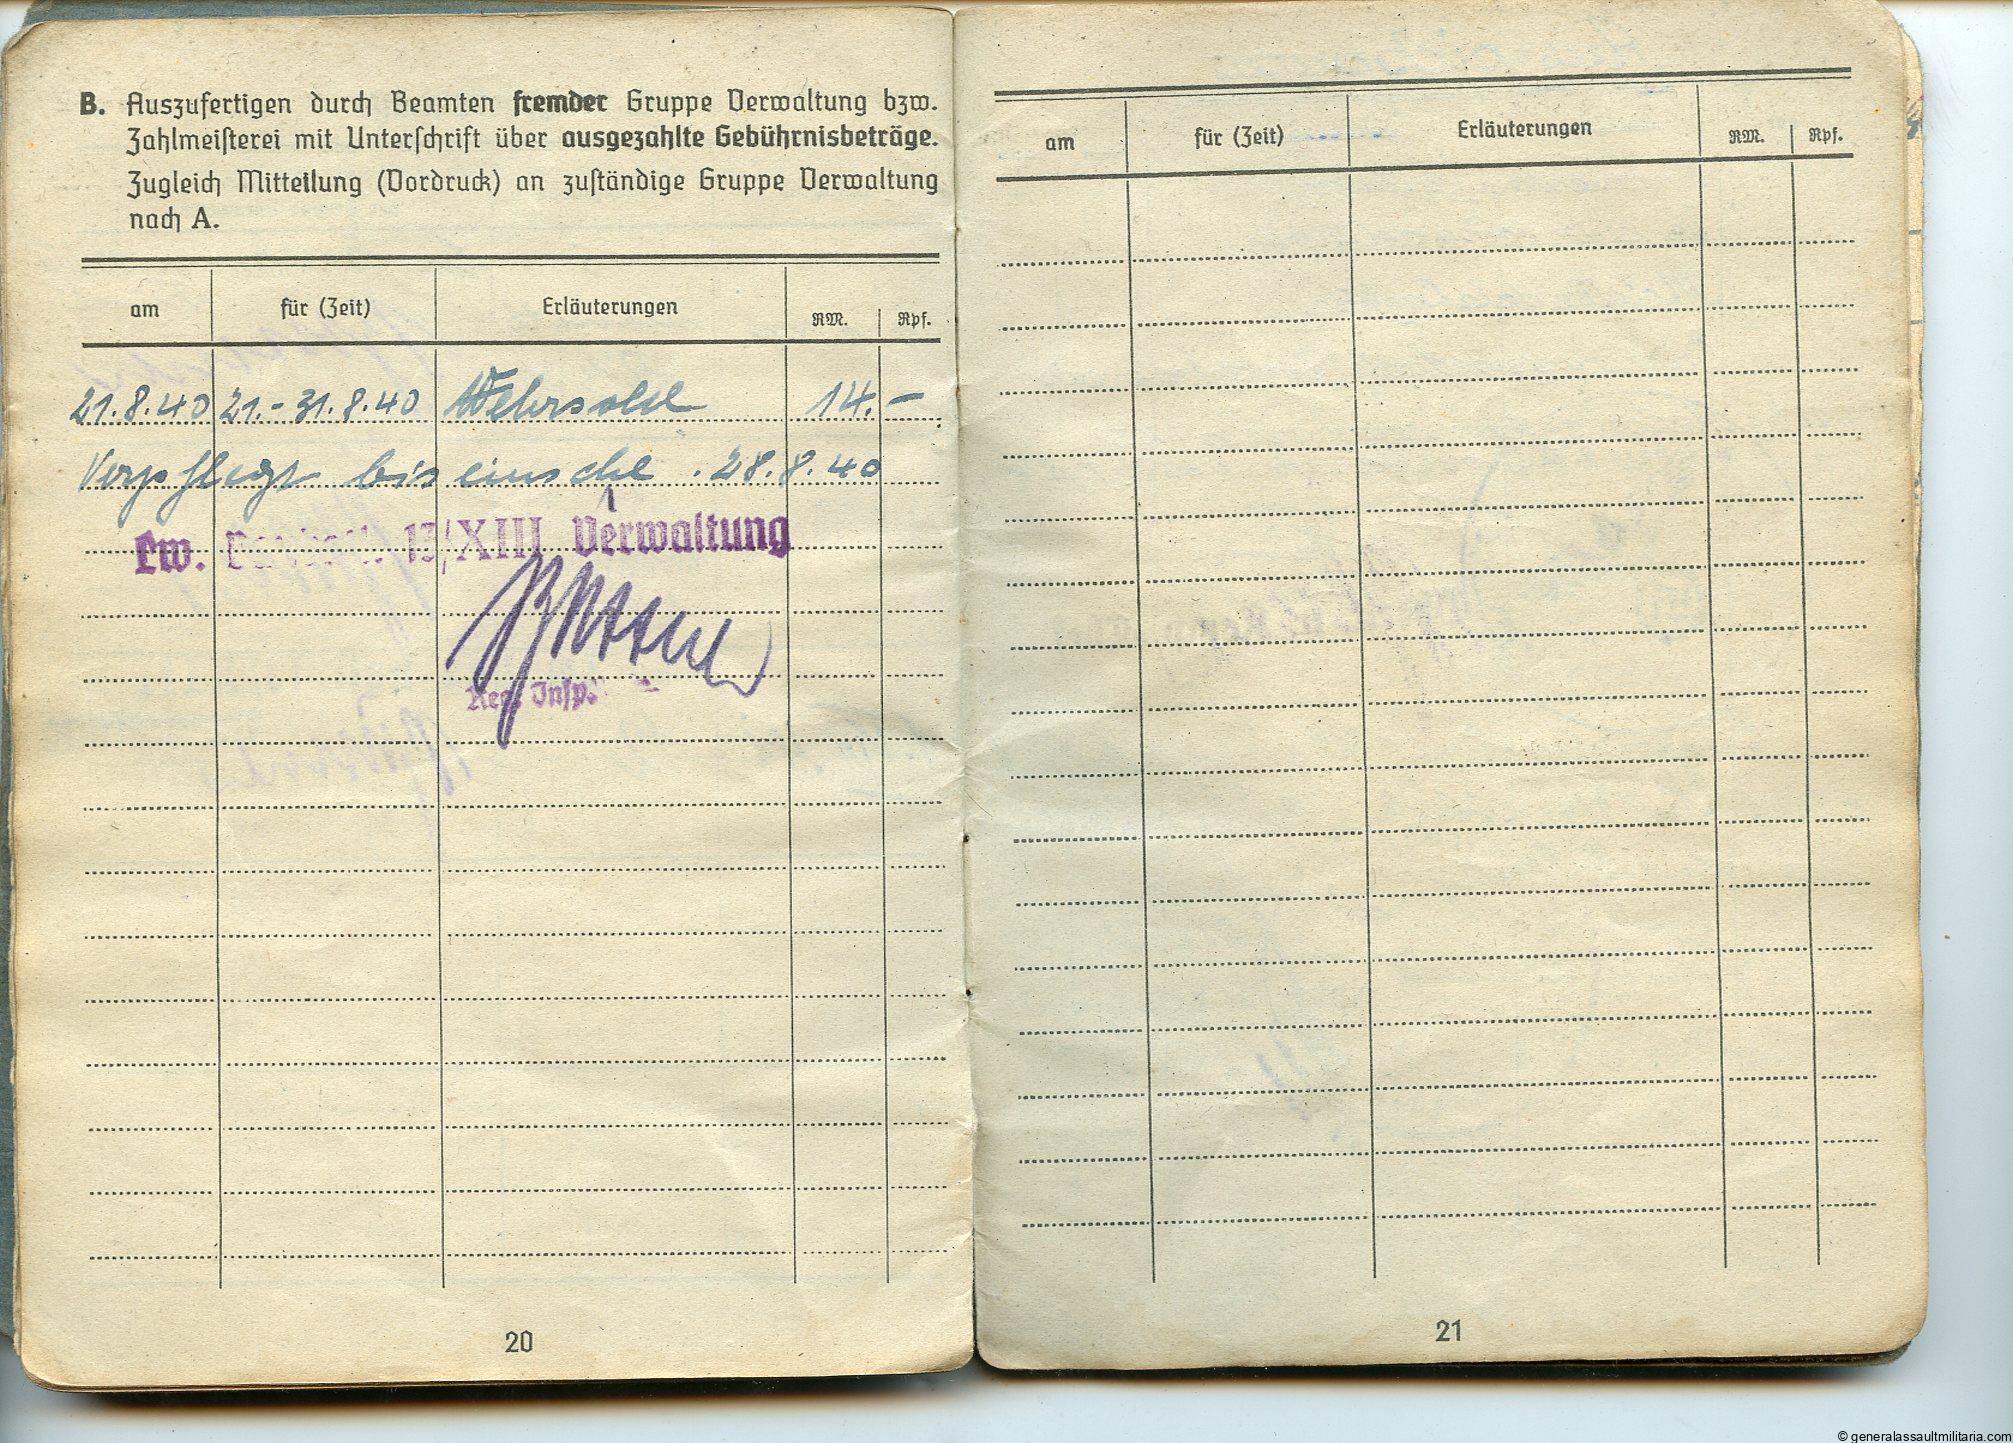 B. Auszufertigen durch Beamten fremder Gruppe Verwaltung bzw.
Zahlmeisterei mit Unterschrift über ausgezahlte Gebührnisbeträge.
Zugleich Mitteilung (Vordruck) an zuständige Gruppe Verwaltung
nach A.
am für (Zeit) Erläuterungen RM. Rpf.
21.8.40 21.- 31.8.40 Wehrsold 14.-
Verpflegt bis einschl. 28.8.40
Lw. 13/XIII Verwaltung
Reg. Insp.
20
am für (Zeit) Erläuterungen RM. Rpf.
21
© generalassaultmilitaria.com